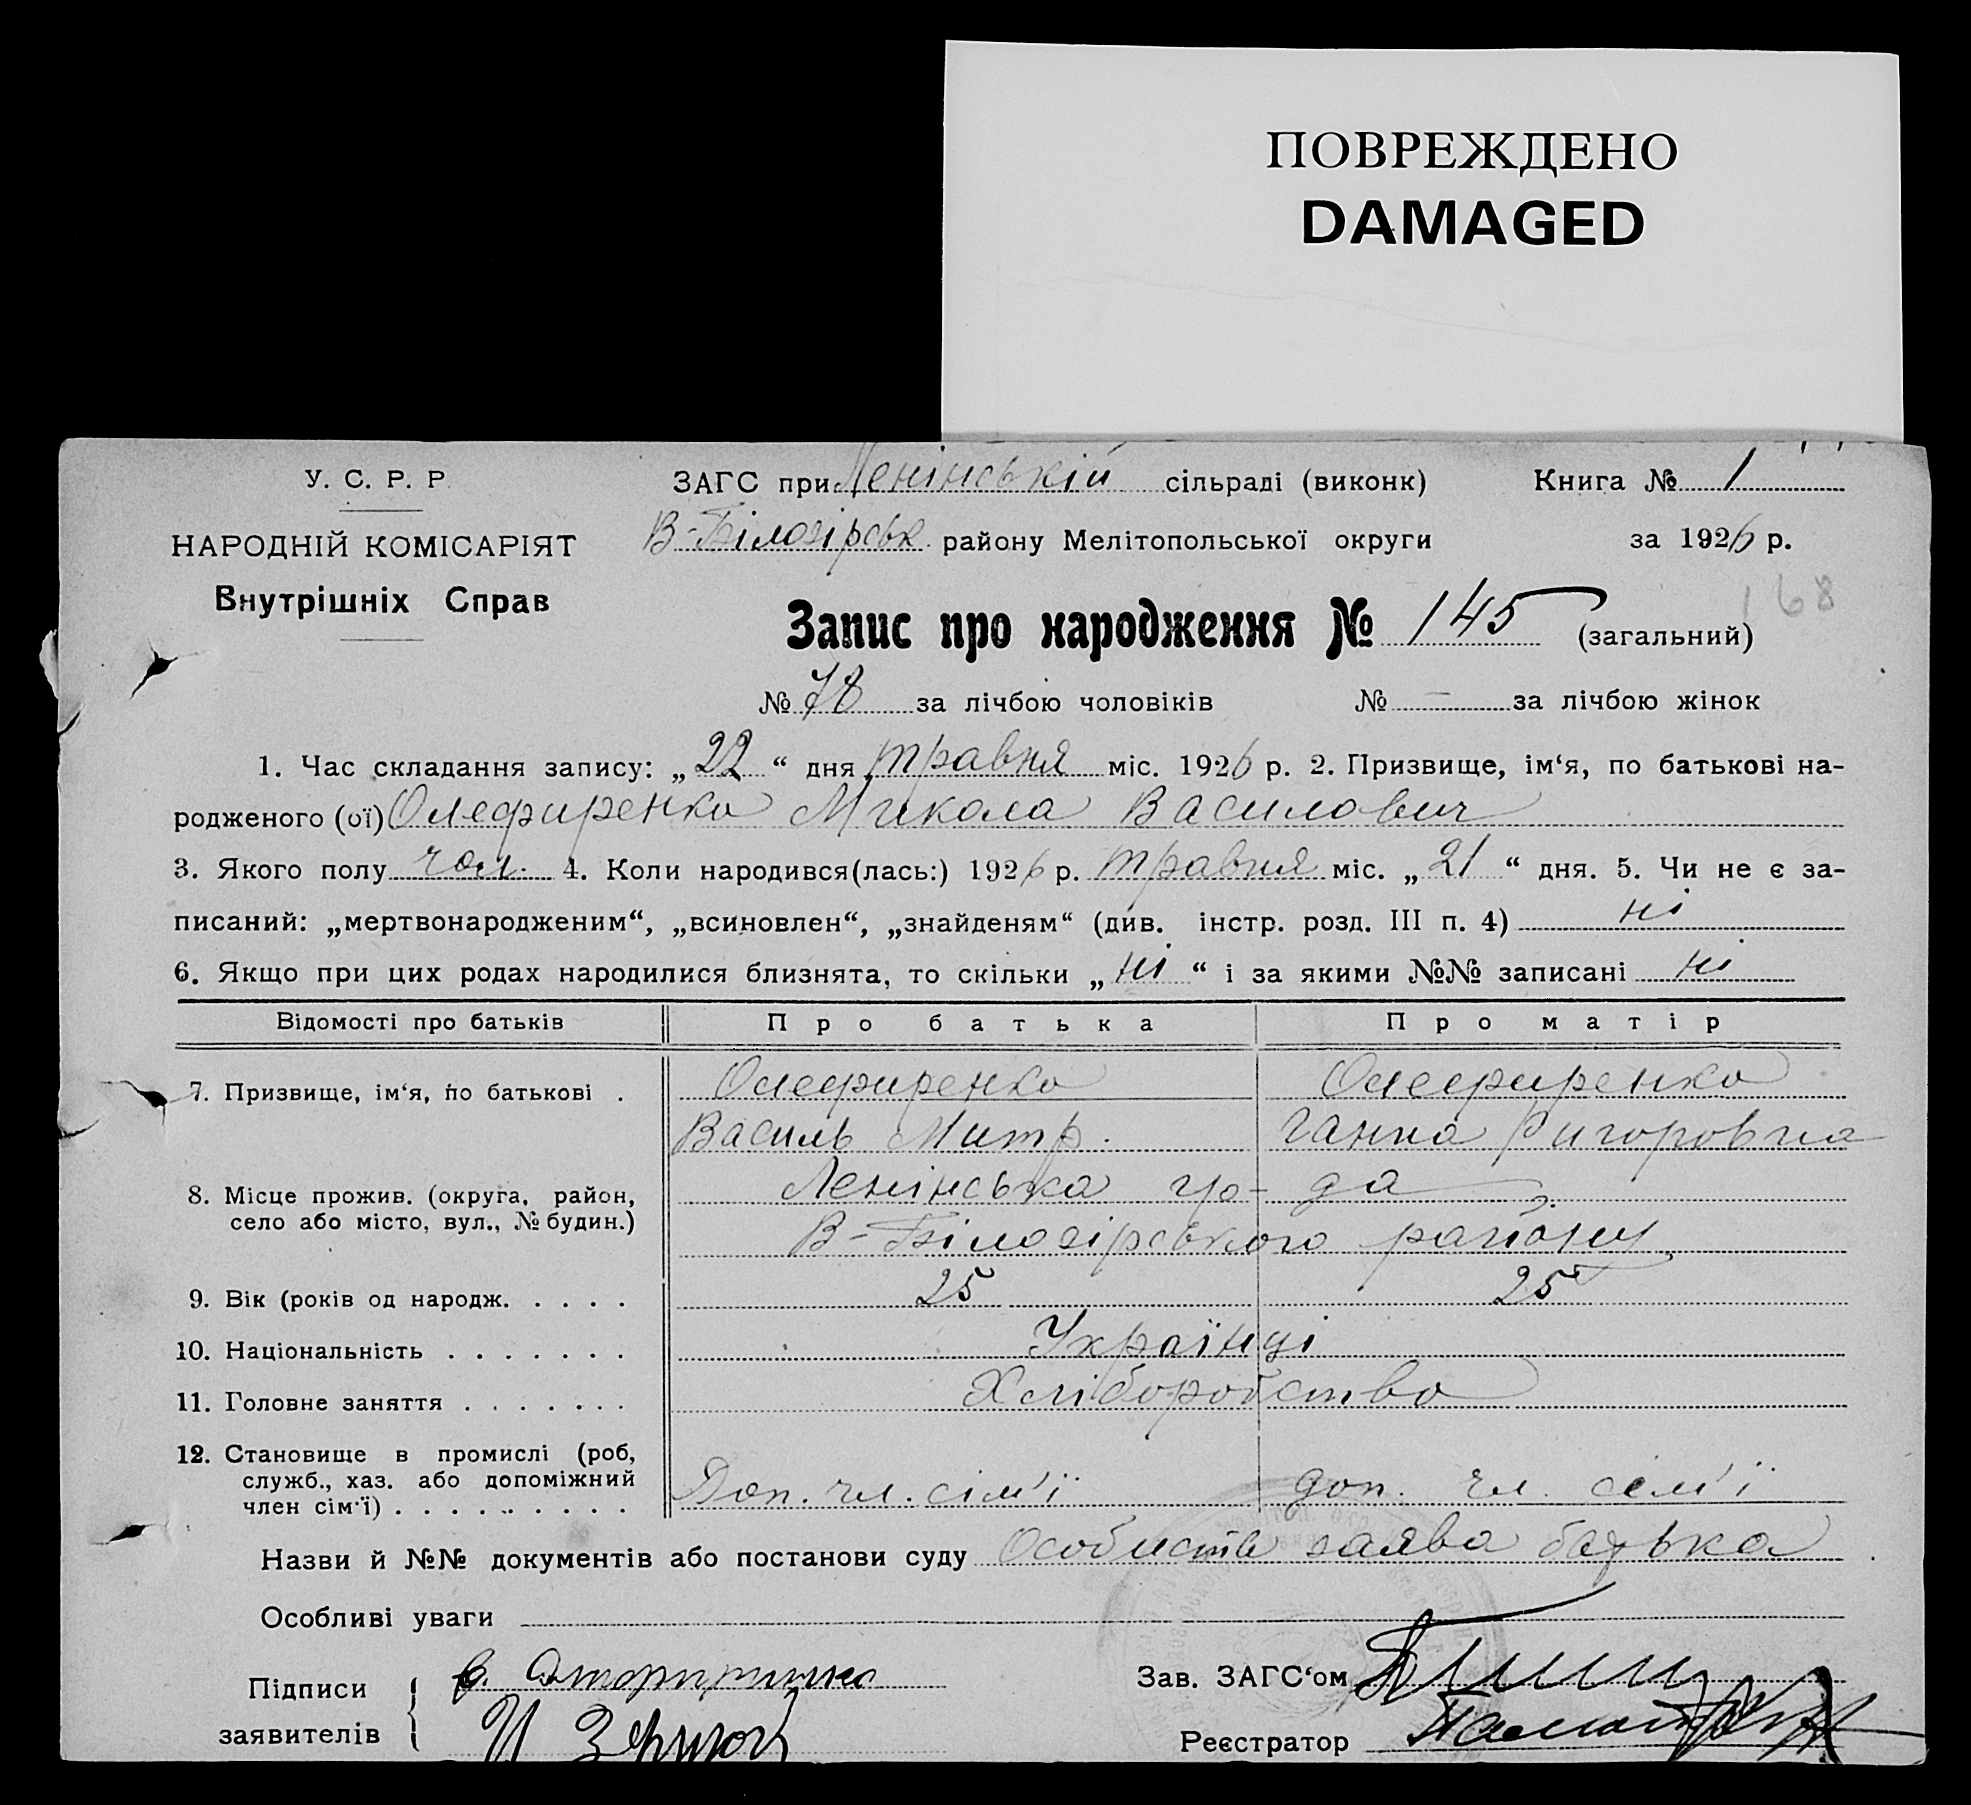 ПОВРЕЖДЕНО
DAMAGED
У. С. Р. Р.
НАРОДНІЙ КОМІСАРІЯТ
Внутрішніх Справ
ЗАГС при Ленінській сільраді (виконк) Книга № 1
В-Білозірськ району Мелітопольської округи за 1926 р.
168
Запис про народження № 145 (загальний)
№ 78 за лічбою чоловіків № — за лічбою жінок
1. Час складання запису: „22“ дня травня міс. 1926 р. 2. Призвище, ім‘я, по батькові на-
родженого (ої) Олефиренко Микола Василович
3. Якого полу чол. 4. Коли народився(лась:) 1926 р. травня міс. „21“ дня. 5. Чи не є за-
писаний: „мертвонародженим“, „всиновлен“, „знайденям“ (див. інстр. розд. III п. 4) ні
6. Якщо при цих родах народилися близнята, то скільки „ні“ і за якими №№ записані ні
Відомості про батьків Про батька Про матір
7. Призвище, ім‘я, по батькові . Олефиренко Олефиренко
Василь Митр. Ганна Григоровна
8. Місце прожив. (округа, район, Ленінська гро-да
село або місто, вул., № будин.) В-Білозірського району
9. Вік (років од народж. . . . . 25 25
10. Національність . . . . . . . Українці
11. Головне заняття . . . . . . . Хліборобство
12. Становище в промислі (роб,
служб., хаз. або допоміжний
член сім‘ї) . . . . . . . . . Доп. чл. сім'ї доп. чл. сім'ї
Назви й №№ документів або постанови суду Особиста заява батька
Особливі уваги
Підписи
заявителів
Зав. ЗАГС‘ом
Реєстратор